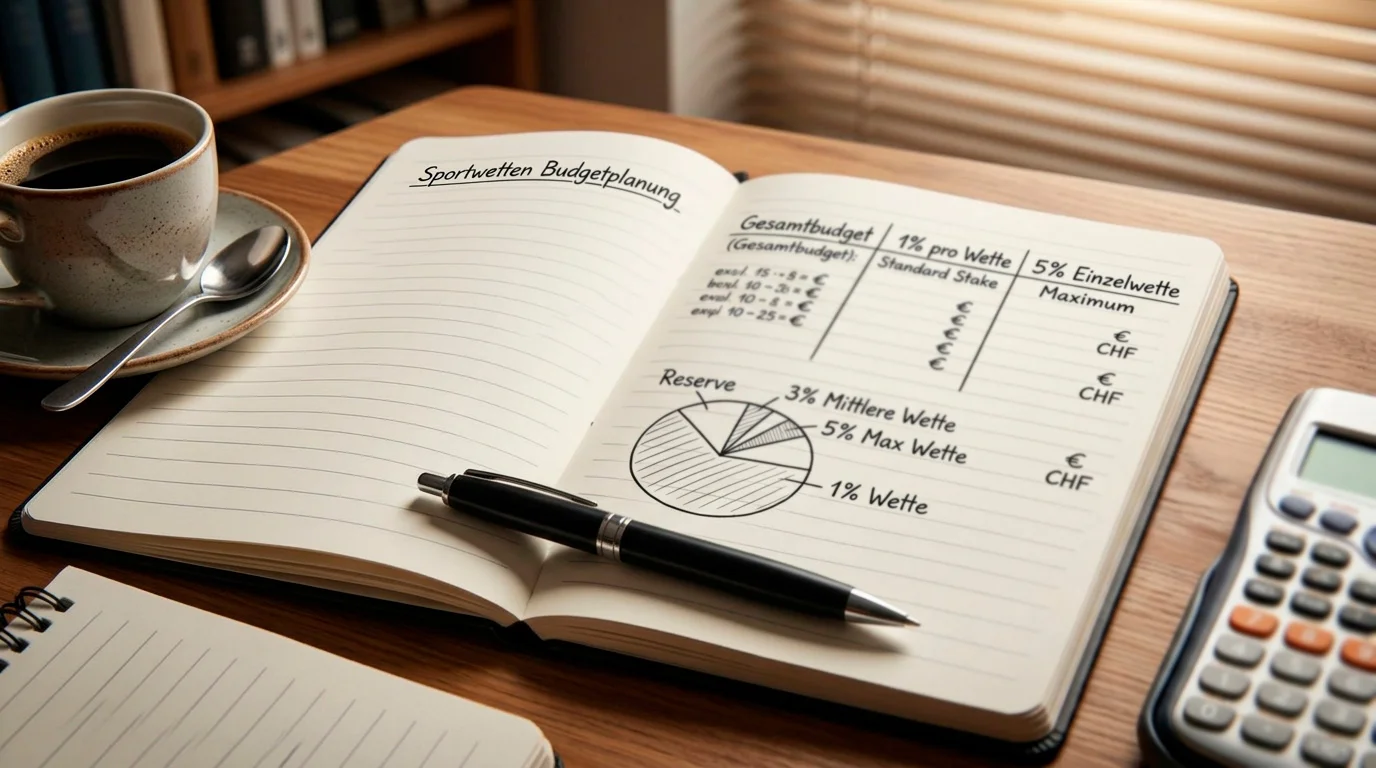 Sportwetten Budgetplanung
Gesamtbudget
(Gesamtbudget):
= €
10 - = €
10 - 8 = €
10 - 25 = €
1% pro Wette
Standard Stake
€
€
€
€
5% Einzelwette
Maximum
€
CHF
€
CHF
€
CHF
Reserve
3% Mittlere Wette
5% Max Wette
1% Wette